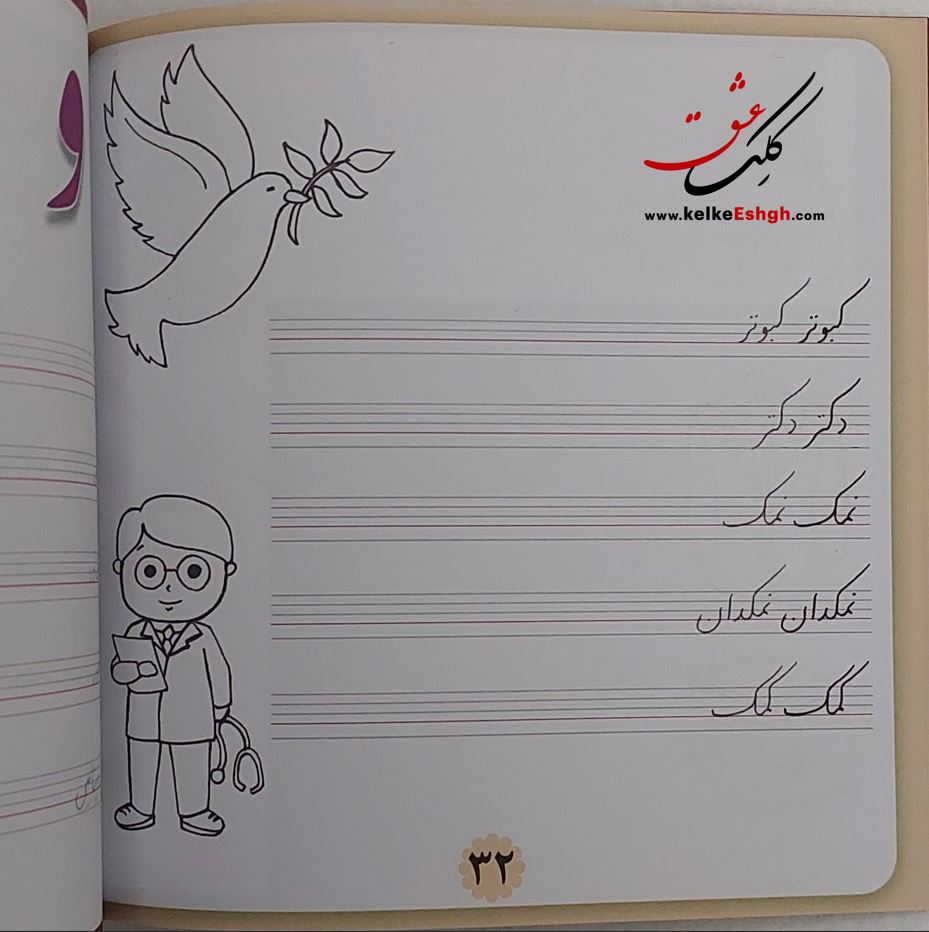 کلک عشق
www.kelkeEshgh.com
کبوتر کبوتر
دکتر دکتر
نمک نمک
نمکدان نمکدان
کمک کمک
۳۲
و